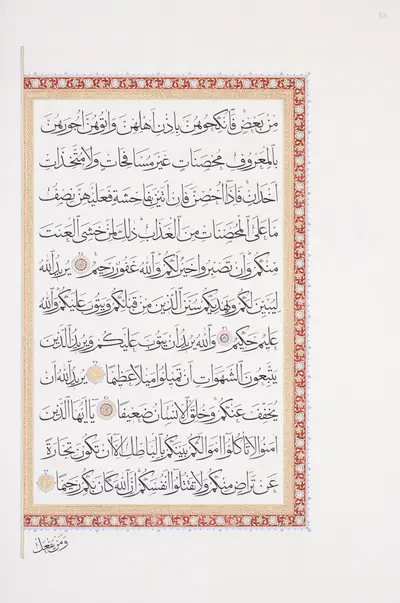 ٤٨
من بعض فانكحوهن باذن اهلهن واتوهن اجورهن
بالمعروف محصنات غير مسافحات ولا متخذات
اخدان فاذا احصن فان اتين بفاحشة فعليهن نصف
ما على المحصنات من العذاب ذلك لمن خشي العنت
منكم وان تصبروا خير لكم والله غفور رحيم يريد الله
ليبين لكم ويهديكم سنن الذين من قبلكم ويتوب عليكم والله
عليم حكيم والله يريد ان يتوب عليكم ويريد الذين
يتبعون الشهوات ان تميلوا ميلا عظيما يريد الله ان
يخفف عنكم وخلق الانسان ضعيفا يا ايها الذين
امنوا لا تاكلوا اموالكم بينكم بالباطل الا ان تكون تجارة
عن تراض منكم ولا تقتلوا انفسكم ان الله كان بكم رحيما
ومن يفعل